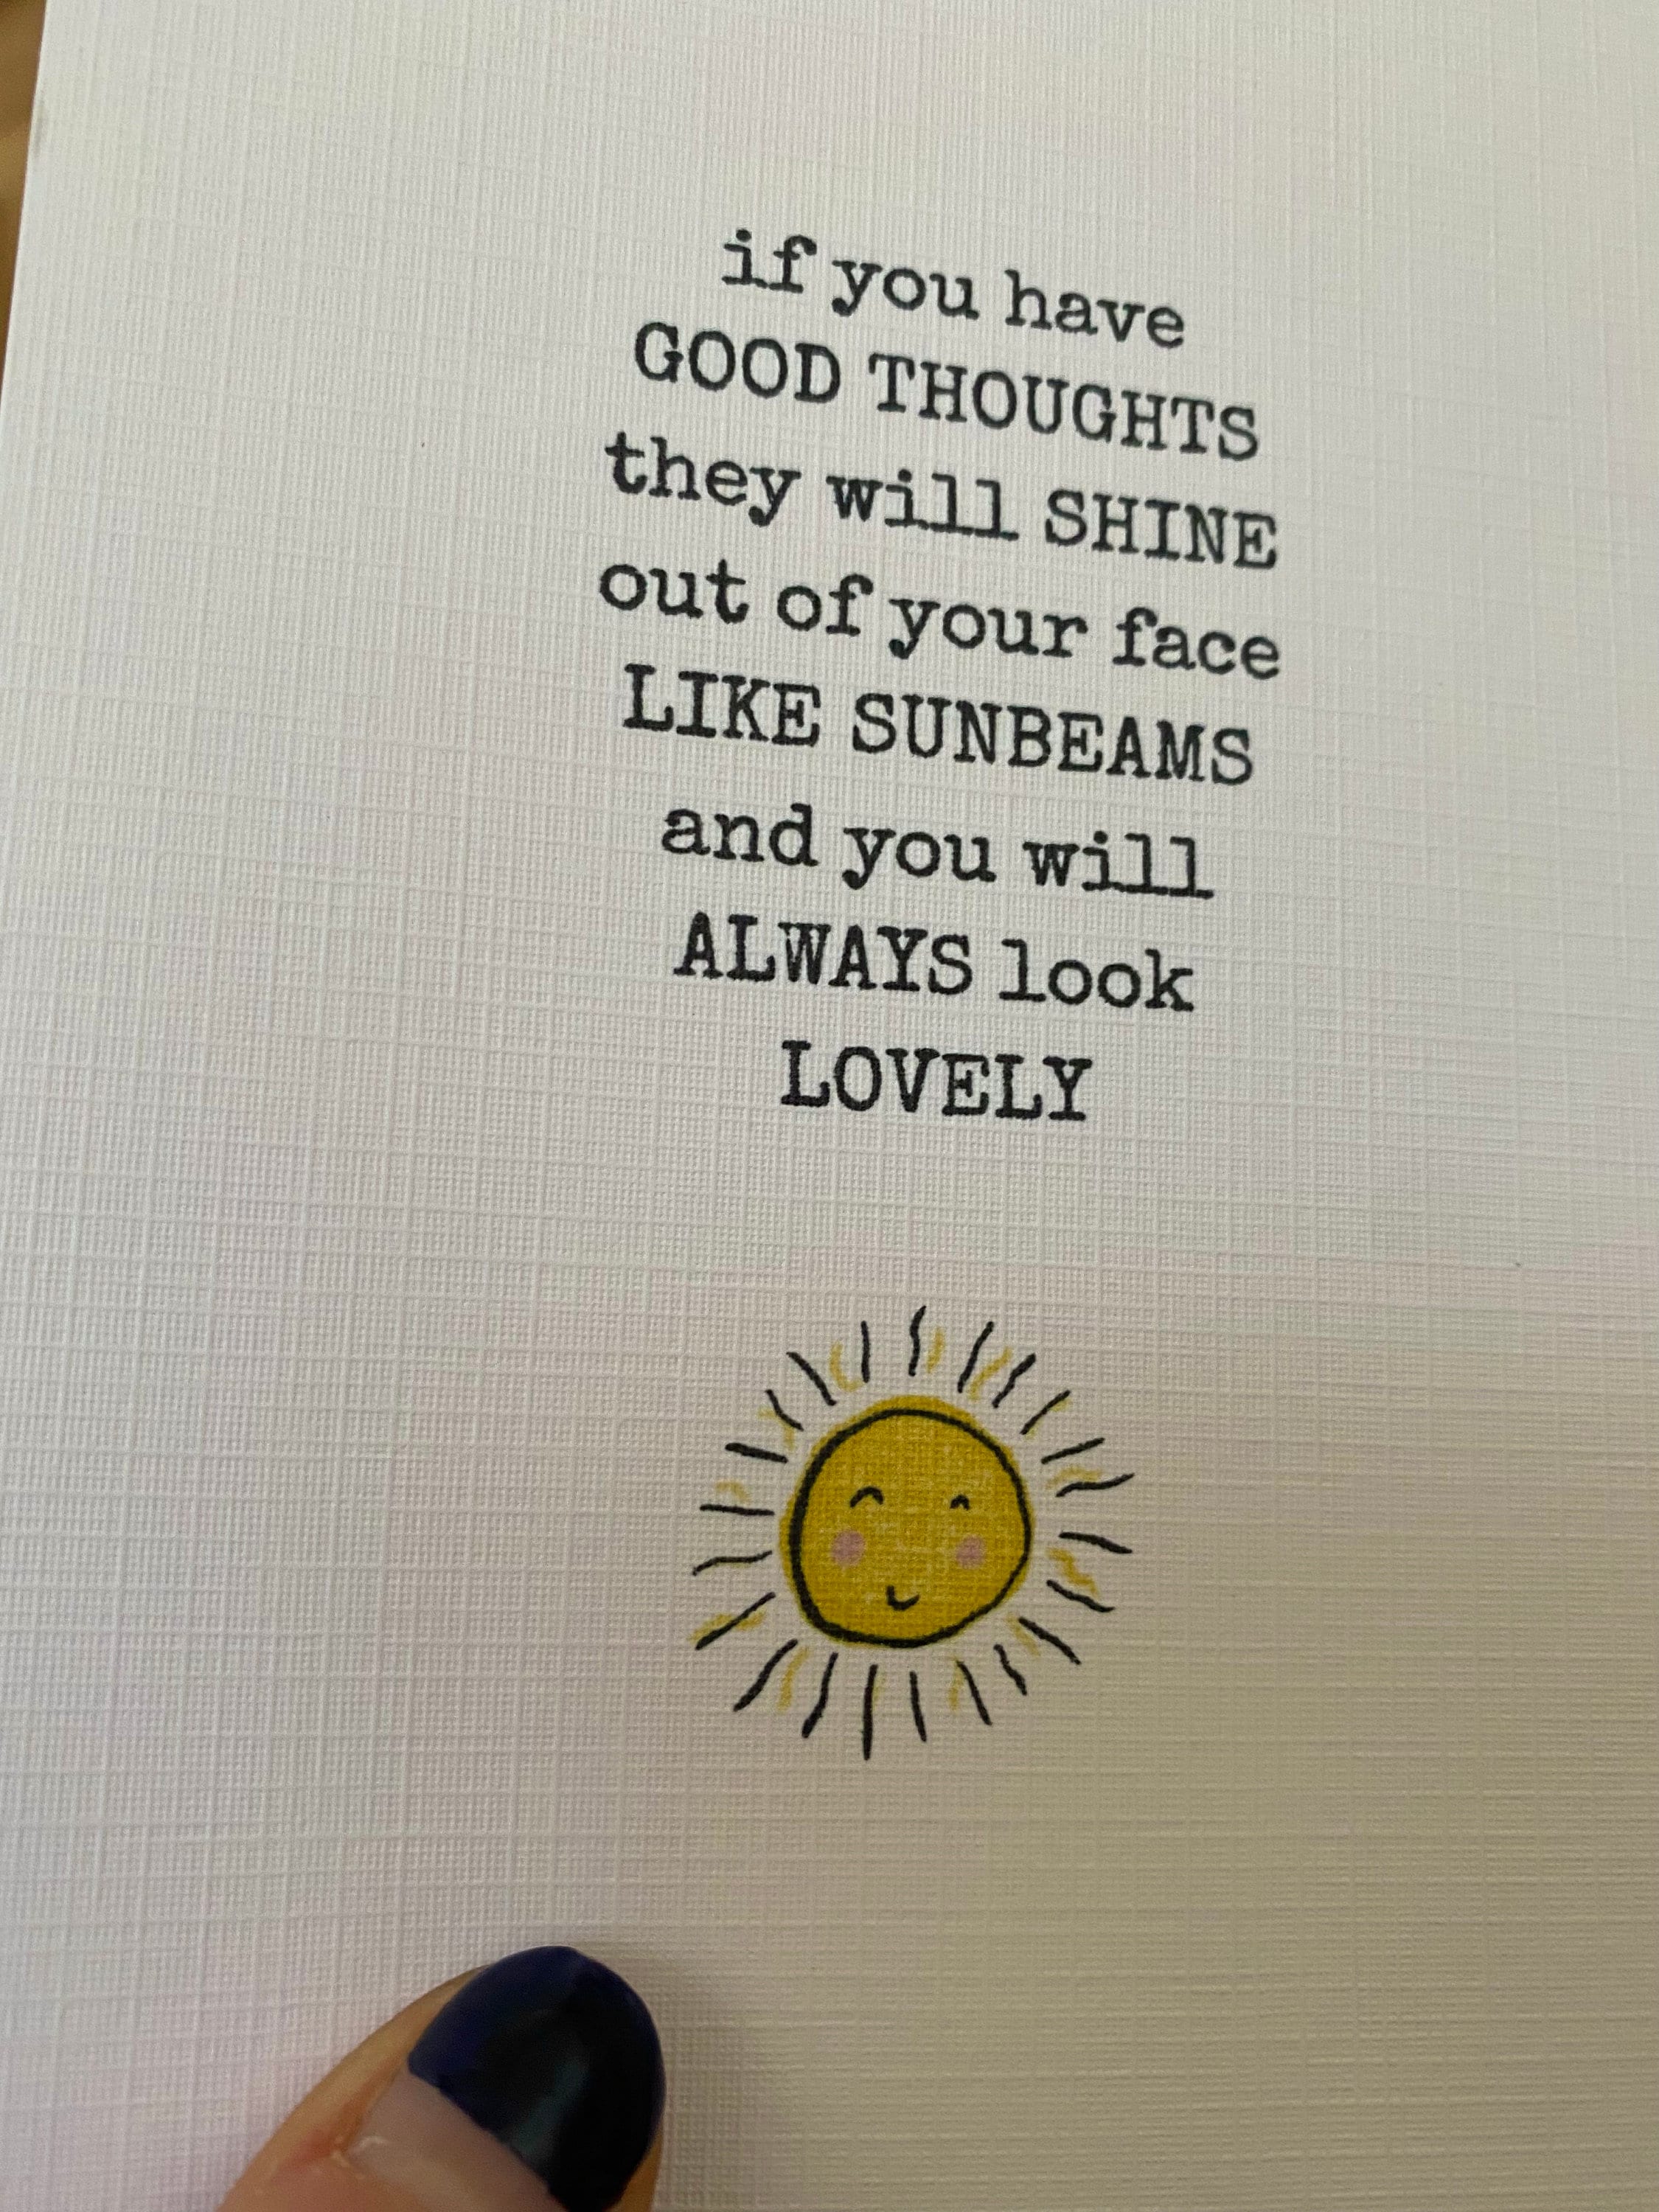 if you have
GOOD THOUGHTS
they will SHINE
out of your face
LIKE SUNBEAMS
and you will
ALWAYS look
LOVELY